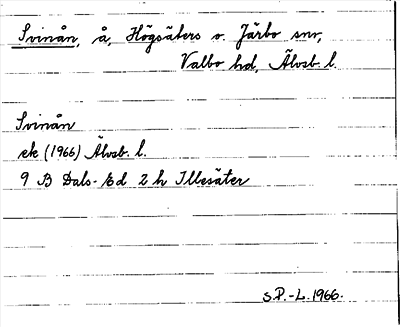 Svinån, å, Högsäters o. Järbo snr,
Valbo hd, Älvsb. l.
Svinån
ek (1966) Älvsb. l.
9 B Dals-Ed 2 h Illesäter
S.P.-L. 1966.